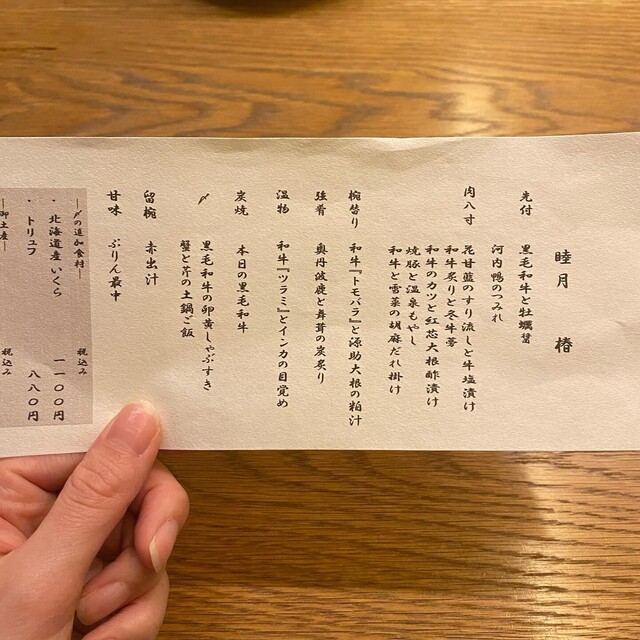 睦月　椿
先付　黒毛和牛と牡蠣醤
河内鴨のつみれ
肉八寸　花甘藍のすり流しと牛塩漬け
和牛炙りと冬牛蒡
和牛のカツと紅芯大根酢漬け
焼豚と温泉もやし
和牛と雪菜の胡麻だれ掛け
椀替り　和牛『トモバラ』と源助大根の粕汁
強肴　奥丹波鹿と舞茸の炭炙り
温物　和牛『ツラミ』とインカの目覚め
炭焼　本日の黒毛和牛
〆　黒毛和牛の卵黄しゃぶすき
蟹と芹の土鍋ご飯
留椀　赤出汁
甘味　ぷりん最中
―〆の追加食材―　税込み
・北海道産いくら　一一〇〇円
・トリュフ　八八〇円
―御土産―　税込み